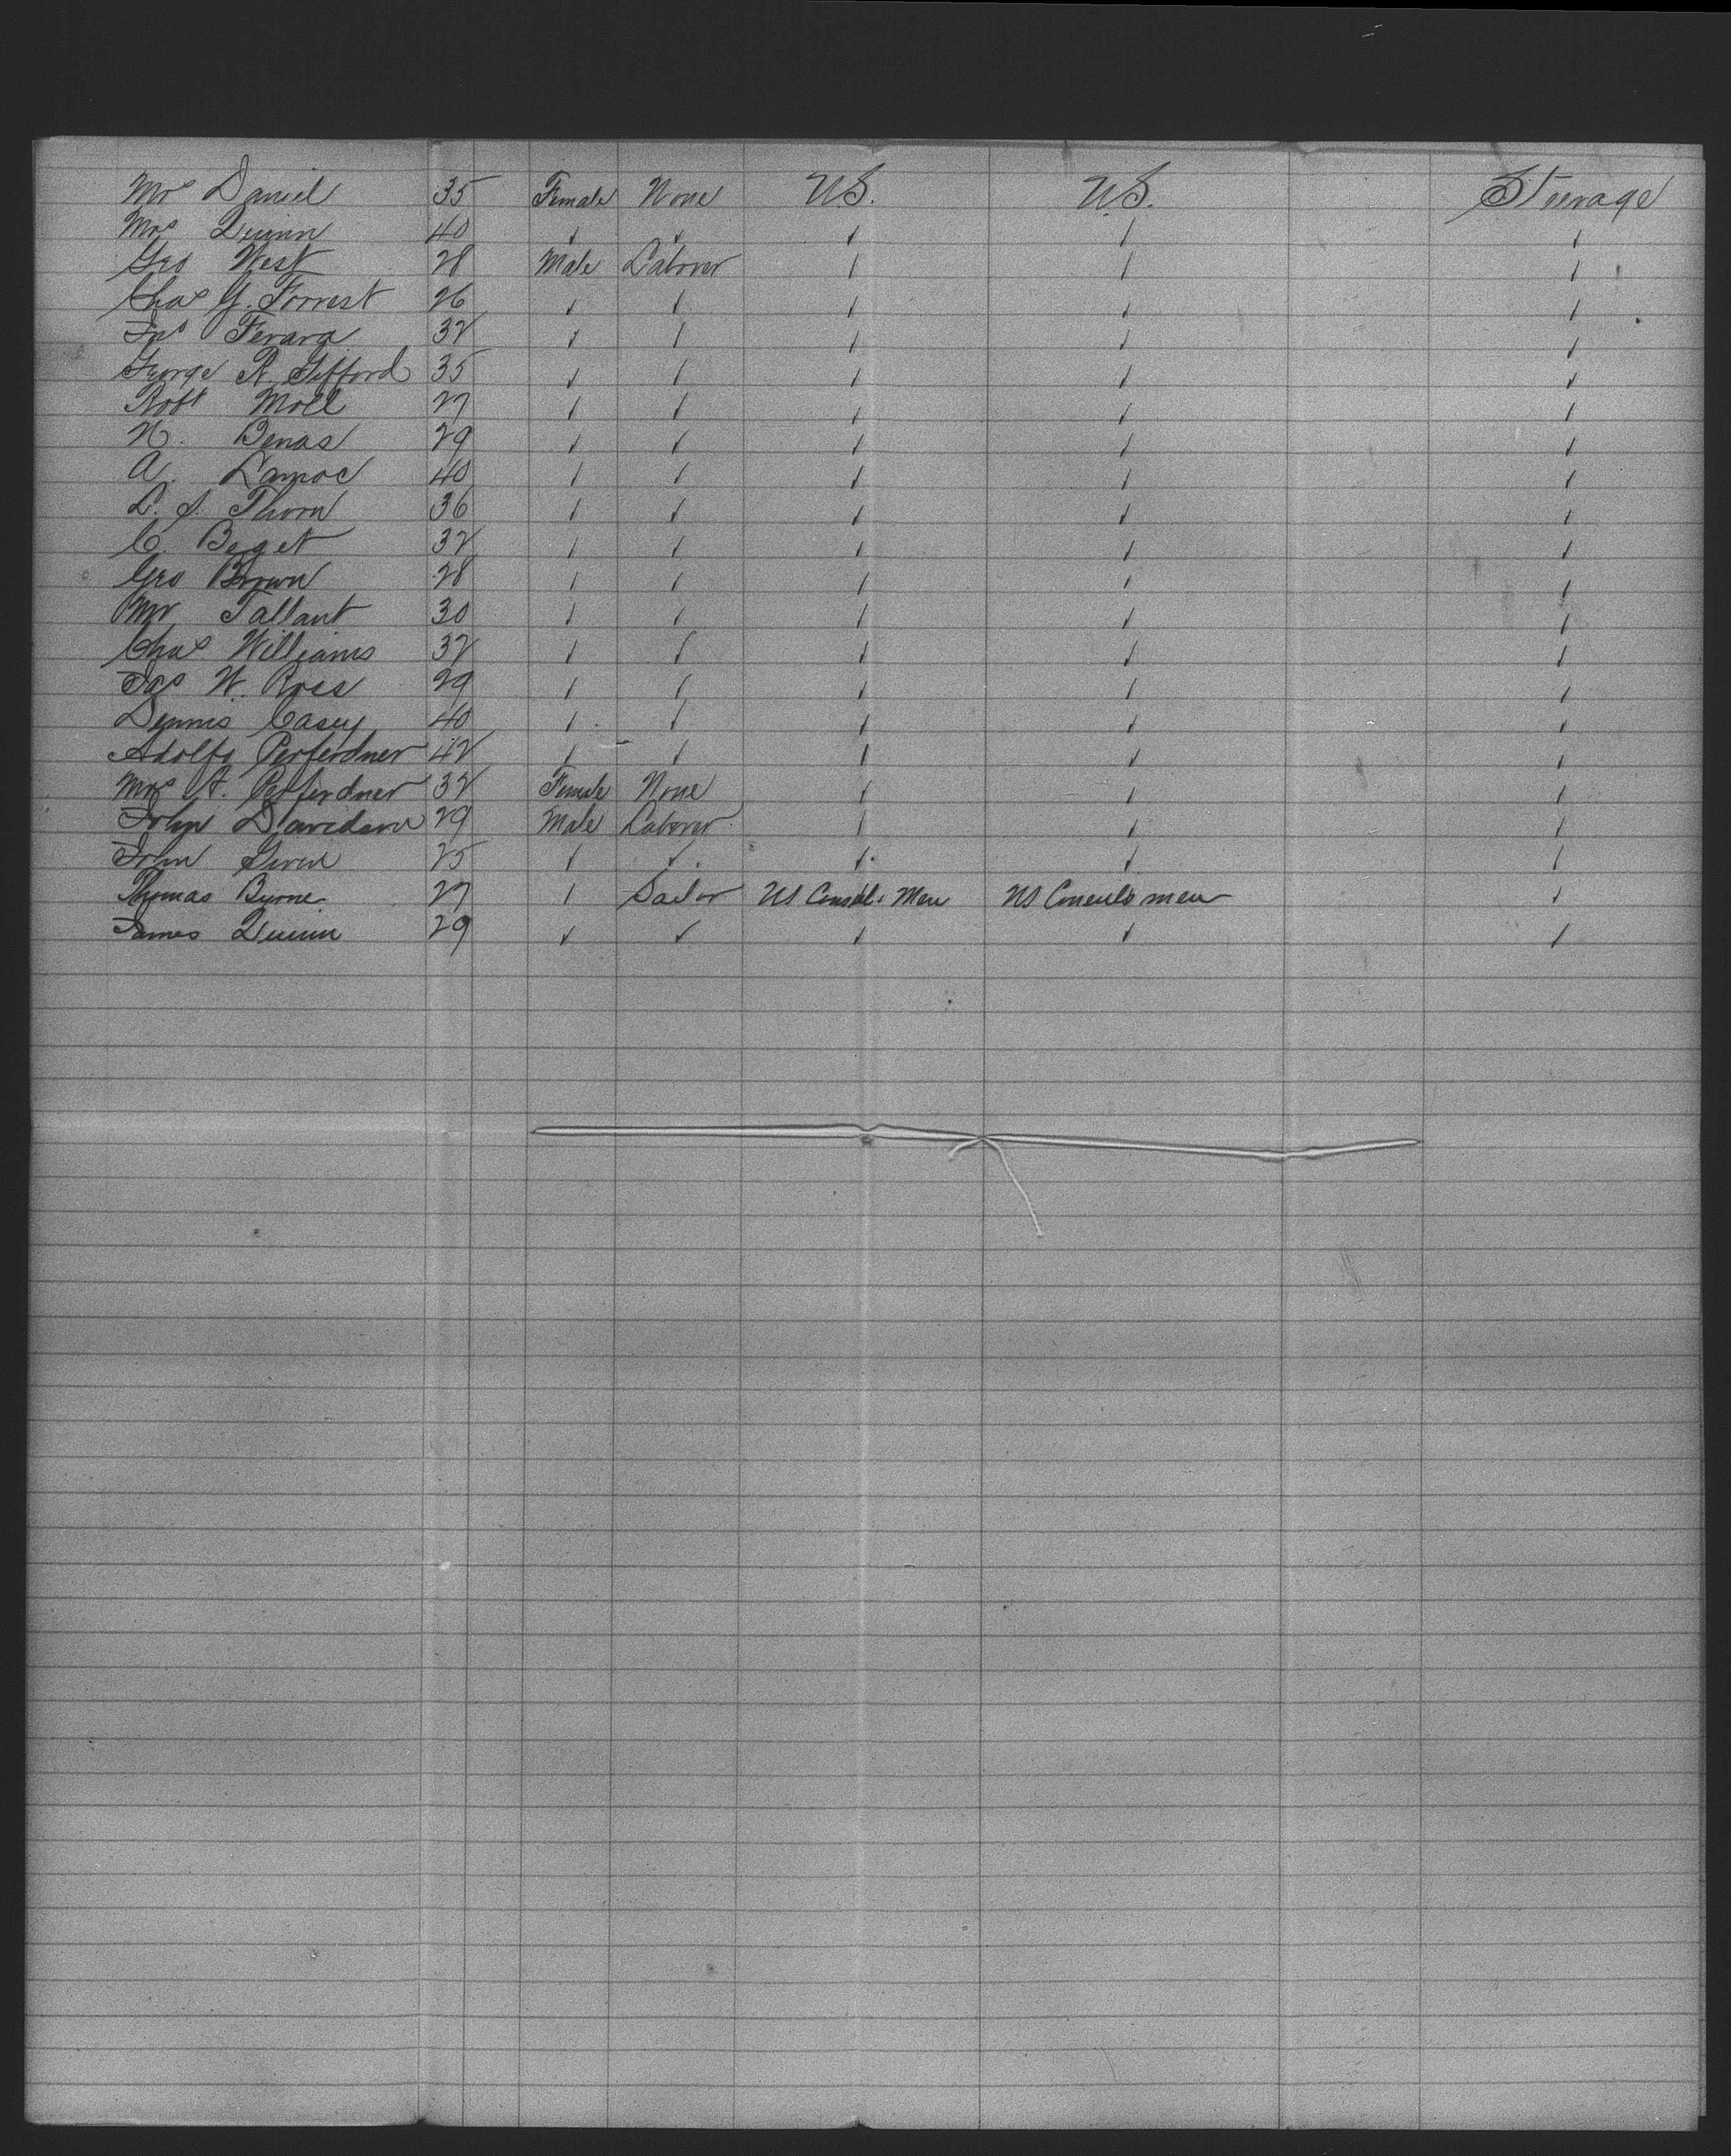 Mrs Daniel 35 Female None U.S. U.S. Steerage
Mrs Quinn 40 ✓ ✓ ✓ ✓ ✓
Geo West 28 Male Laborer ✓ ✓ ✓
Chas G. Forrest 26 ✓ ✓ ✓ ✓ ✓
Jno Ferara 32 ✓ ✓ ✓ ✓ ✓
George R. Gifford 35 ✓ ✓ ✓ ✓ ✓
Robt Moll 27 ✓ ✓ ✓ ✓ ✓
N. Benas 29 ✓ ✓ ✓ ✓ ✓
A. 40 ✓ ✓ ✓ ✓ ✓
L. S. Thorn 36 ✓ ✓ ✓ ✓ ✓
C. Beget 32 ✓ ✓ ✓ ✓ ✓
Geo Brown 28 ✓ ✓ ✓ ✓ ✓
Mr Tallant 30 ✓ ✓ ✓ ✓ ✓
Chas Williams 32 ✓ ✓ ✓ ✓ ✓
Jas W. Ross 29 ✓ ✓ ✓ ✓ ✓
Dennis Casey 40 ✓ ✓ ✓ ✓ ✓
Adolfo Perferdner 42 ✓ ✓ ✓ ✓ ✓
Mrs A. Perferdner 32 Female None ✓ ✓ ✓
John Davidson 29 Male Laborer ✓ ✓ ✓
John 25 ✓ ✓ ✓ ✓ ✓
Thomas Byrne 27 ✓ Sailor US Consuls Men US Consuls men ✓
James Quinn 29 ✓ ✓ ✓ ✓ ✓